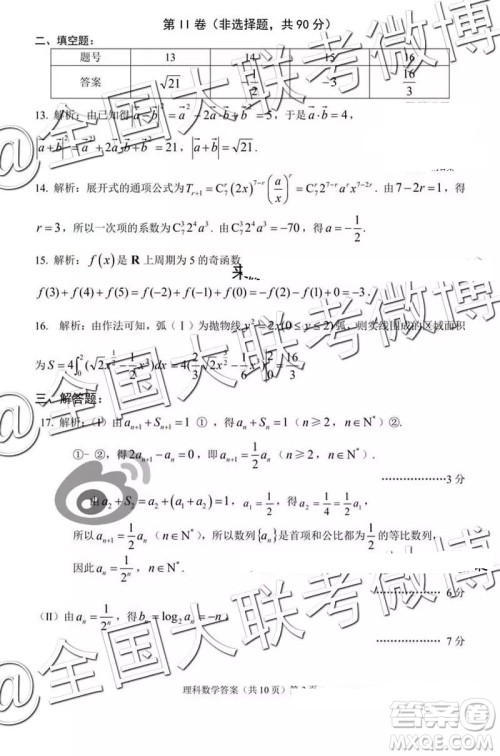 第 II 卷（非选择题，共 90 分）
二、填空题：
题号 13 14 15 16
答案 √21 -1/2 -3 16/3
13. 解析：由已知得 |a-b|² = a² - 2a·b + b² = 5，于是 a·b = 4，
|a+b|² = a² + 2a·b + b² = 21，|a+b| = √21.
14. 解析：展开式的通项公式为 T_{r+1} = C_7^r (2x)^{7-r} (a/x)^r = C_7^r 2^{7-r} a^r x^{7-2r}. 由 7-2r=1，得
r=3，所以一次项的系数为 C_7^3 2^4 a^3. 由 C_7^3 2^4 a^3 = -70，得 a = -1/2.
15. 解析：f(x) 是 R 上周期为 5 的奇函数
f(3)+f(4)+f(5)=f(-2)+f(-1)+f(0)=-f(2)-f(1)+f(0)=-3.
16. 解析：由作法可知，弧（I）为抛物线 y² = 2x(0≤x≤2) 弧，则实线围成的区域面积
为 S = 4∫_0^2 (√2 x^{1/2} - 1/2 x²)dx = 4(2/3
三、解答题：
17. 解析：(I) 由 a_{n+1} + S_{n+1} = 1 ①，得 a_n + S_n = 1（n≥2，n∈N*）②.
①-②，得 2a_{n+1} - a_n = 0，即 a_{n+1} = 1/2 a_n（n≥2，n∈N*）.
3 分
由 a_2 + S_2 = a_2 + (a_1 + a_2) = 1，a_1 = 1/2，得 a_2 = 1/4 = 1/2 a_1，
所以 a_{n+1} = 1/2 a_n（n∈N*），所以数列{a_n}是首项和公比都为 1/2 的等比数列，
因此 a_n = 1/2^n，n∈N*.
6 分
(II) 由 a_n = 1/2^n，得 b_n = log_2 a_n = -n，
7 分
理科数学答案（共 10 页）
全国大联考微博
全国大联考微博
答案圈